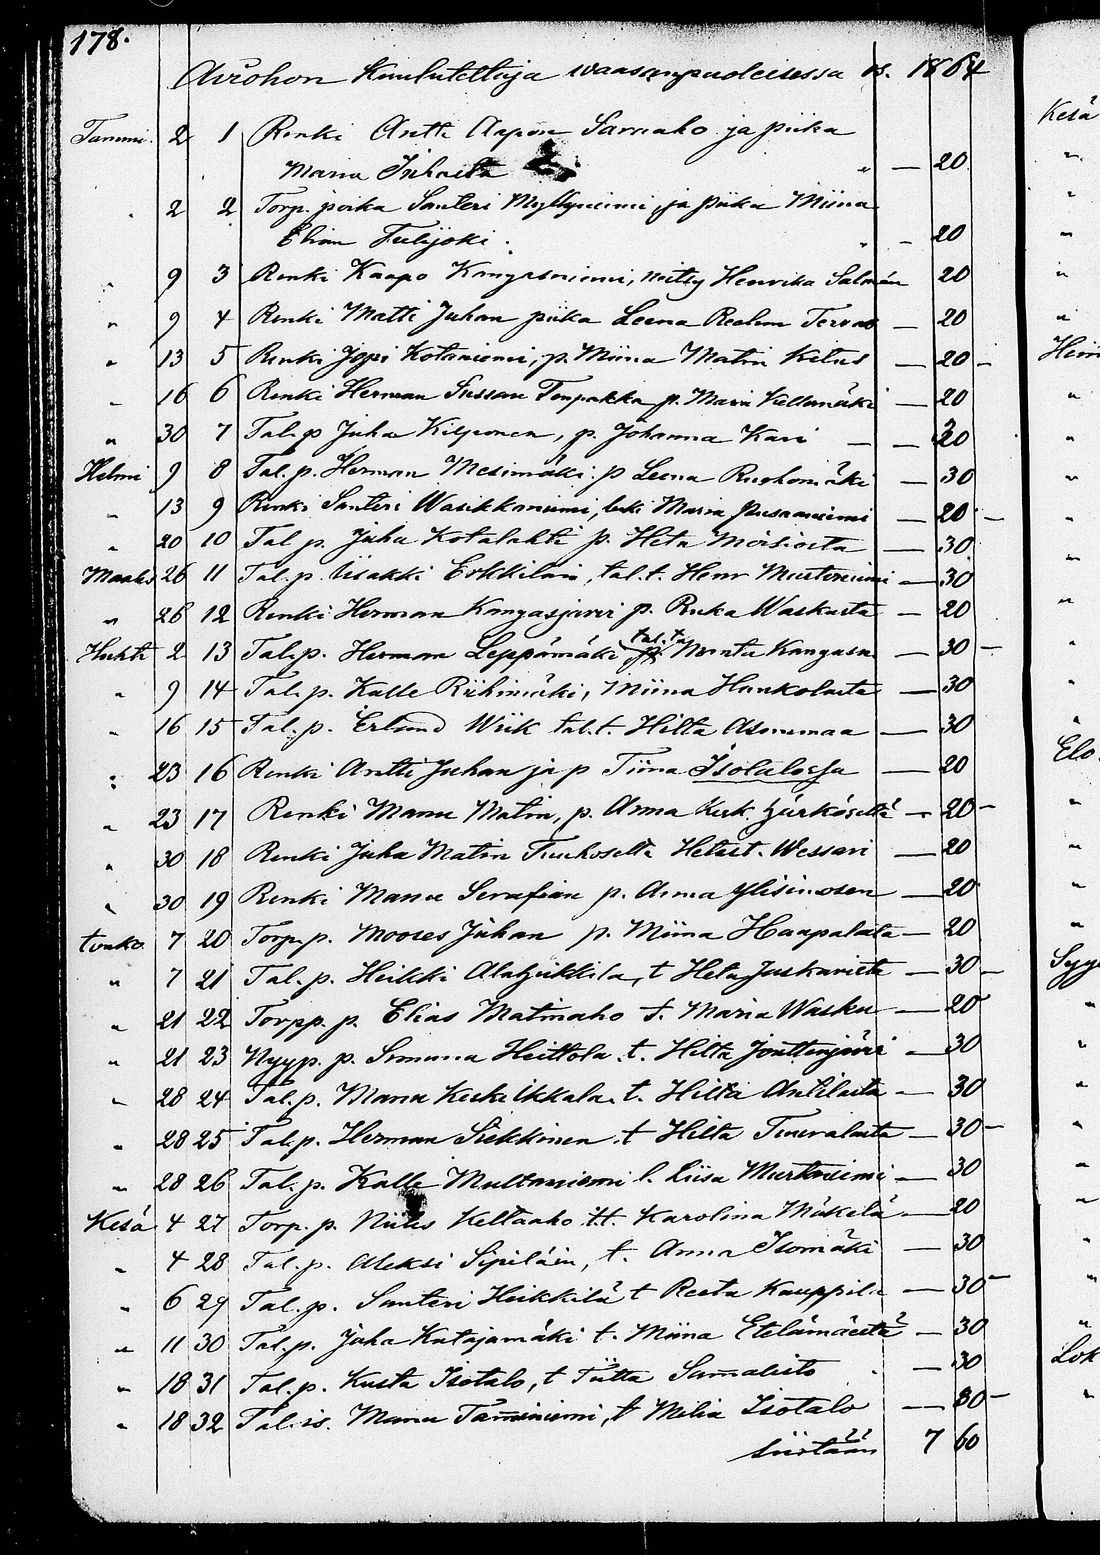 178.
Aviohon Kuulutettuja waasanpuoleisessa v. 1864
Tammi. 2 1 Renki Antti Aapon Sarnaho ja piika
Maria Juhasta " — 20
" 2 2 Torp. poika Santeri Myllyniemi, ja piika Miina
Elian Tulijoki. " - 20
" 9 3 Renki Kaapo Kangasniemi, neitsy Henrika Salmén 20
" 9 4 Renki Matti Juhan piika Leena Tervas — 20
" 13 5 Renki Jopi Kotaniemi, p. Miina Matin Ketus — 20 -
" 16 6 Renki Herman p. Maria Kellomäki — 20
" 30 7 Tal. p Juha Kilponen, p. Johanna Kari — — 20
Helmi 9 8 Tal. p. Herman Mesimäki p Leena Ruohomäki — 30
" 13 9 Renki Santeri Wasikkaniemi, leski Maria Pusaaniemi — 20 —
" 20 10 Tal p. Juha Kotalahti p. Heta Moisiosta — 30
Maalis 26 11 Tal. p. Iisakki Erkkilän, tal. t. Henr Murtoniemi — 30
" 26 12 Renki Herman Kangasjärvi p. Ruka Waskusta — 20
Huhti 2 13 Tal. p. Herman Leppämäki tal. ta Kangas — 30 —
" 9 14 Tal. p. Kalle Riihimäki, Miina Hankolasta — 30
" 16 15 Tal. p. Erlund Wiik tal. t. Hilta Asunmaa — 30
" 23 16 Renki Antti Juhan ja p Tiina Isotalossa — 20
" 23 17 Renki Manu Matin, p. Anna Kesk. — 20 -
" 30 18 Renki Juha Matin Wessari — 20
" 30 19 Renki Manu Serafian p. Anna Ylisimosen — 20
touko 7 20 Torp. p. Mooses Juhan p. Miina Haapalasta — 20
" 7 21 Tal. p. Heikki Alahukkila, t Heta — 30 —
" 21 22 Torpp. p. Elias Matinaho t. Maria Wasku — 20
" 21 23 Nyyp. p. Simuna Heittola t. Hilta Jouttenjärvi — 30
" 28 24 Tal. p. Manu Keski Ikkala. t. Hilta Anttilasta — 30
" 28 25 Tal. p. Herman Siekkinen t Hilta Tuuralasta — 30 —
" 28 26 Tal. p. Kalle Multaniemi l. Liisa Murtoniemi — 30
Kesä 4 27 Torp. p. Niiles Keltaaho tt. Karolina Mäkelä — 20
" 4 28 Tal. p. Aleksi Sipiläin, t. Anna Isomäki — 30
" 6 29 Tal. p. Santeri Heikkilä t Reeta Kauppila — 30 —
" 11 30 Tal. p. Juha Katajamäki t. Miina Etelämäeltä — 30
" 18 31 Tal. p. Kusta Isotalo, t Tiitta — 30
" 18 32 Tal. is. Manu Tammiemi, t Milia Isotalo — 30 —
siirtään 7 60
Kesä
"
"
"
"
"
Hein
"
"
"
"
"
"
"
"
Elo.
"
"
"
"
Syy
"
"
"
"
"
"
"
"
"
Lok
"